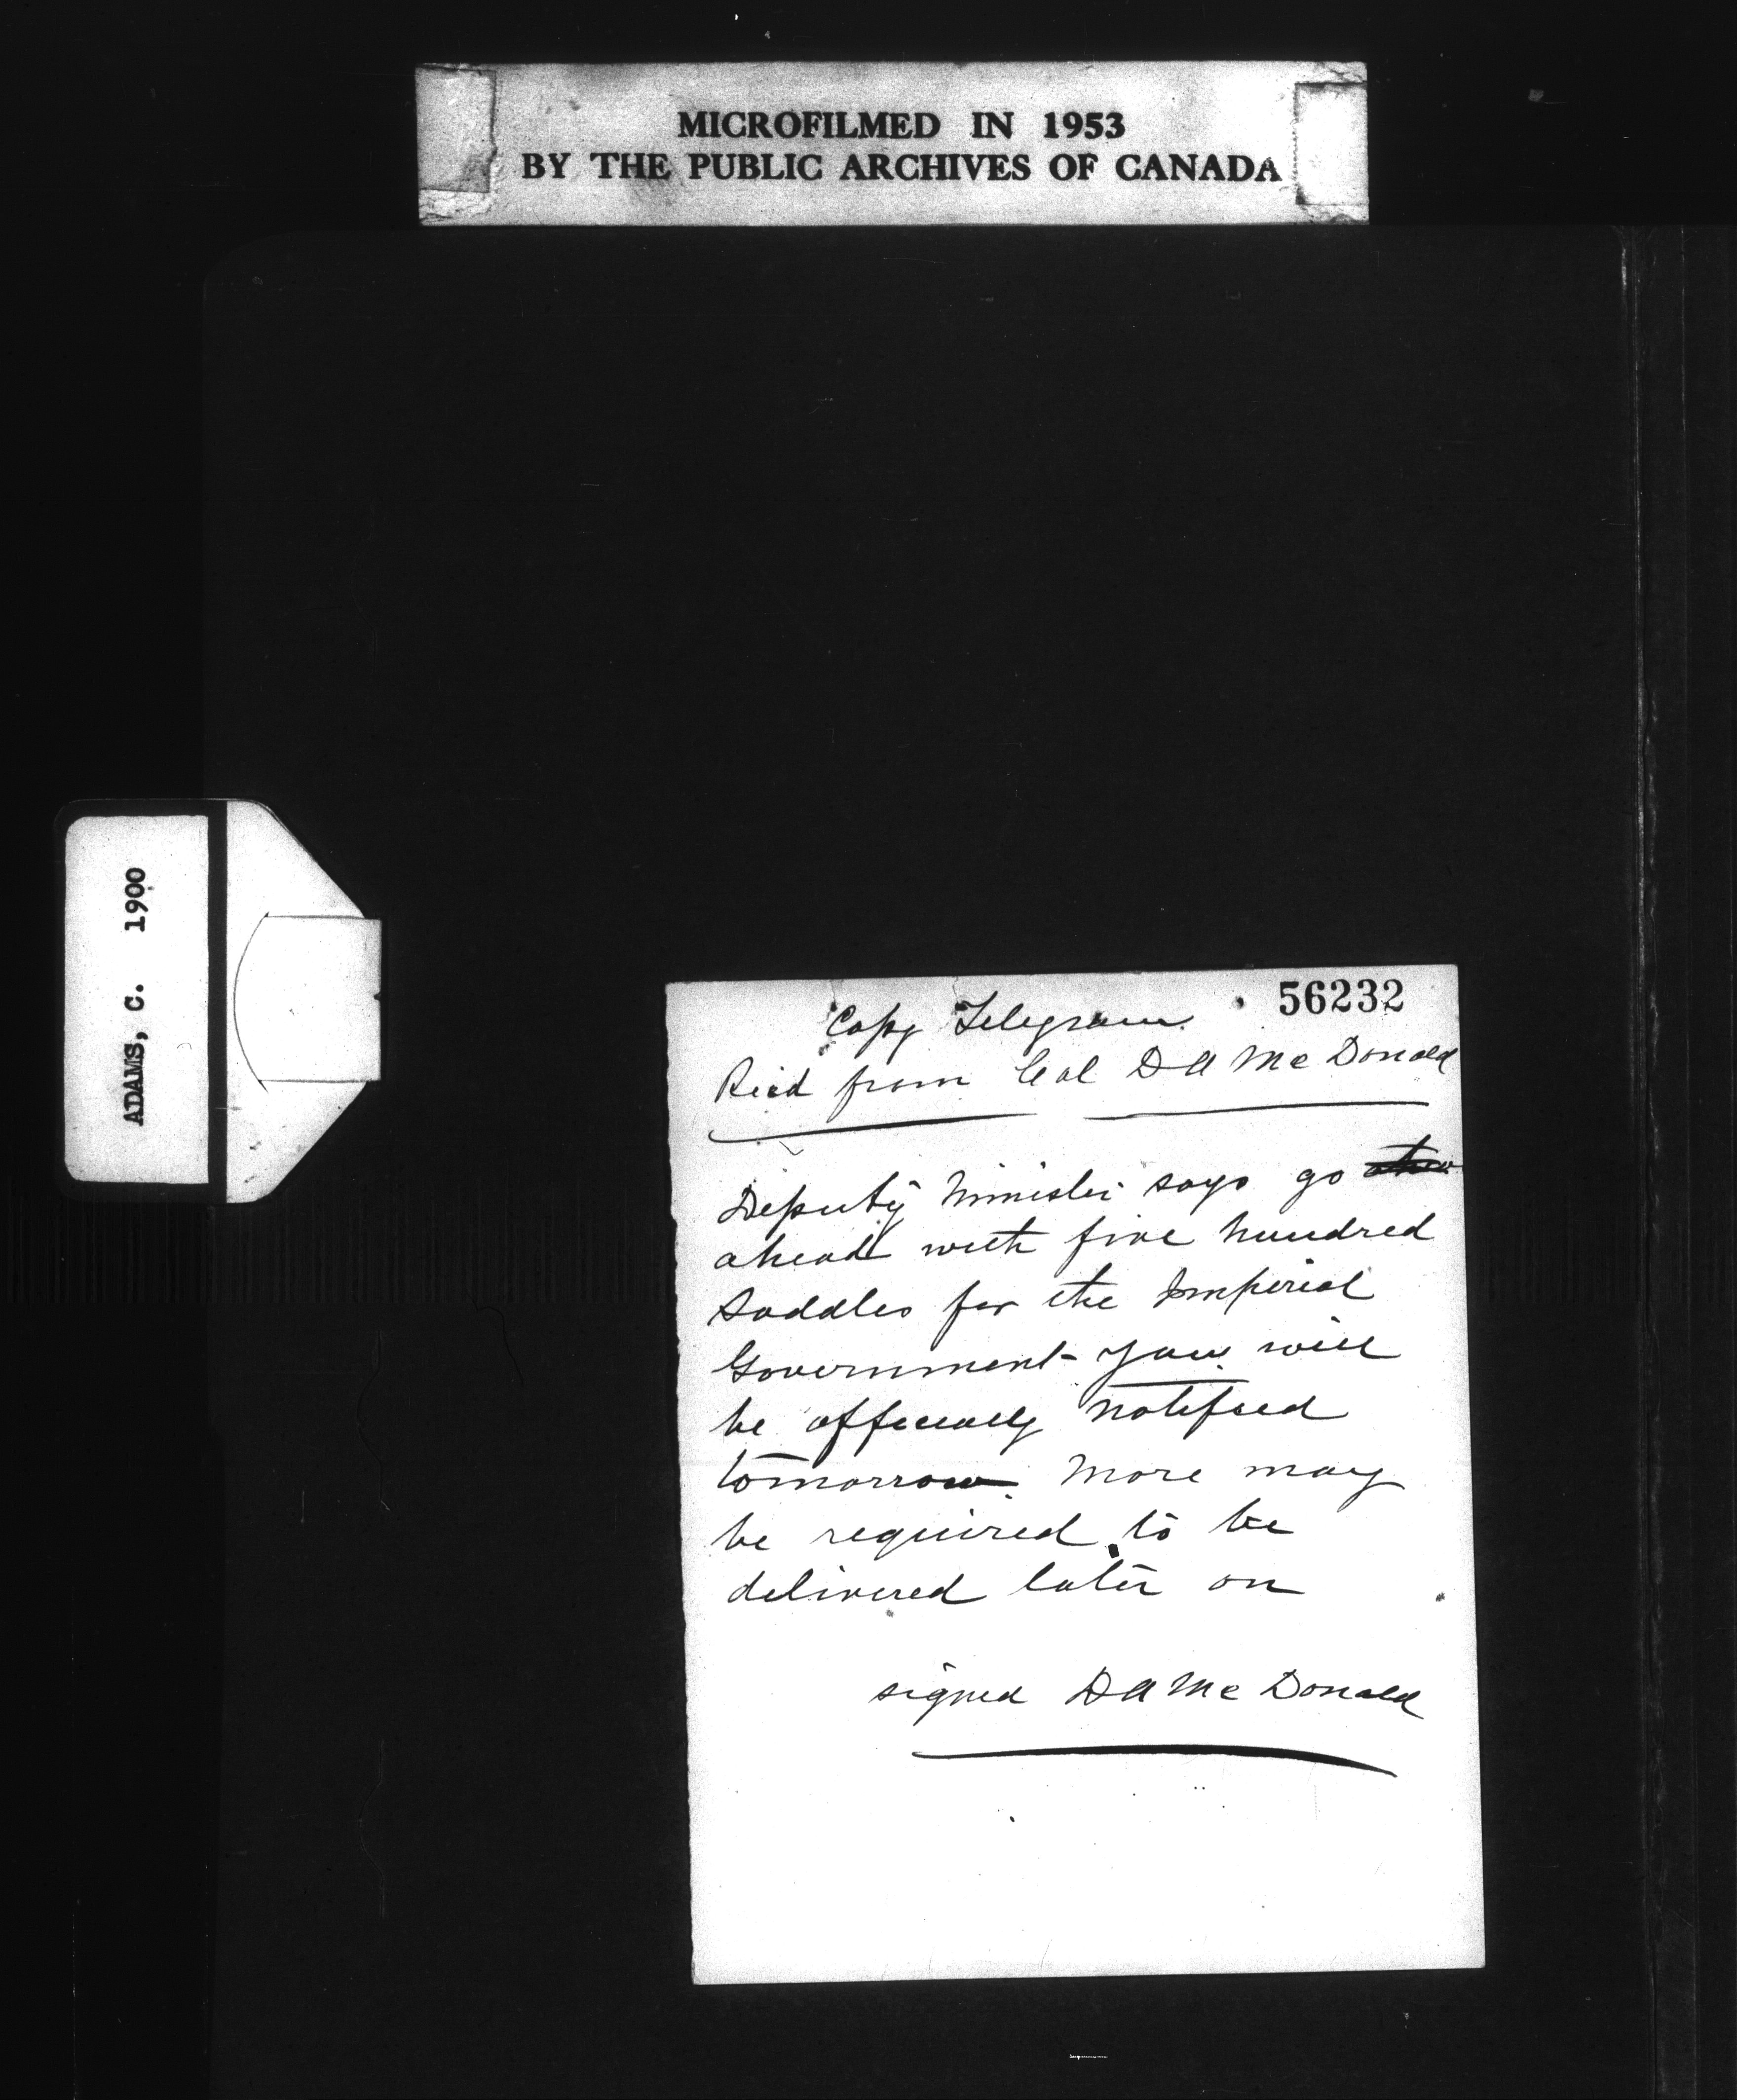 MICROFILMED IN 1953
BY THE PUBLIC ARCHIVES OF CANADA
ADAMS, C. 1900
56232
Copy Telegram
Recd from Col D A McDonald
Deputy Minister says go
ahead with five hundred
Saddles for the Imperial
Government you will
be officially notified
tomorrow. More may
be required to be
delivered later on
signed D A McDonald